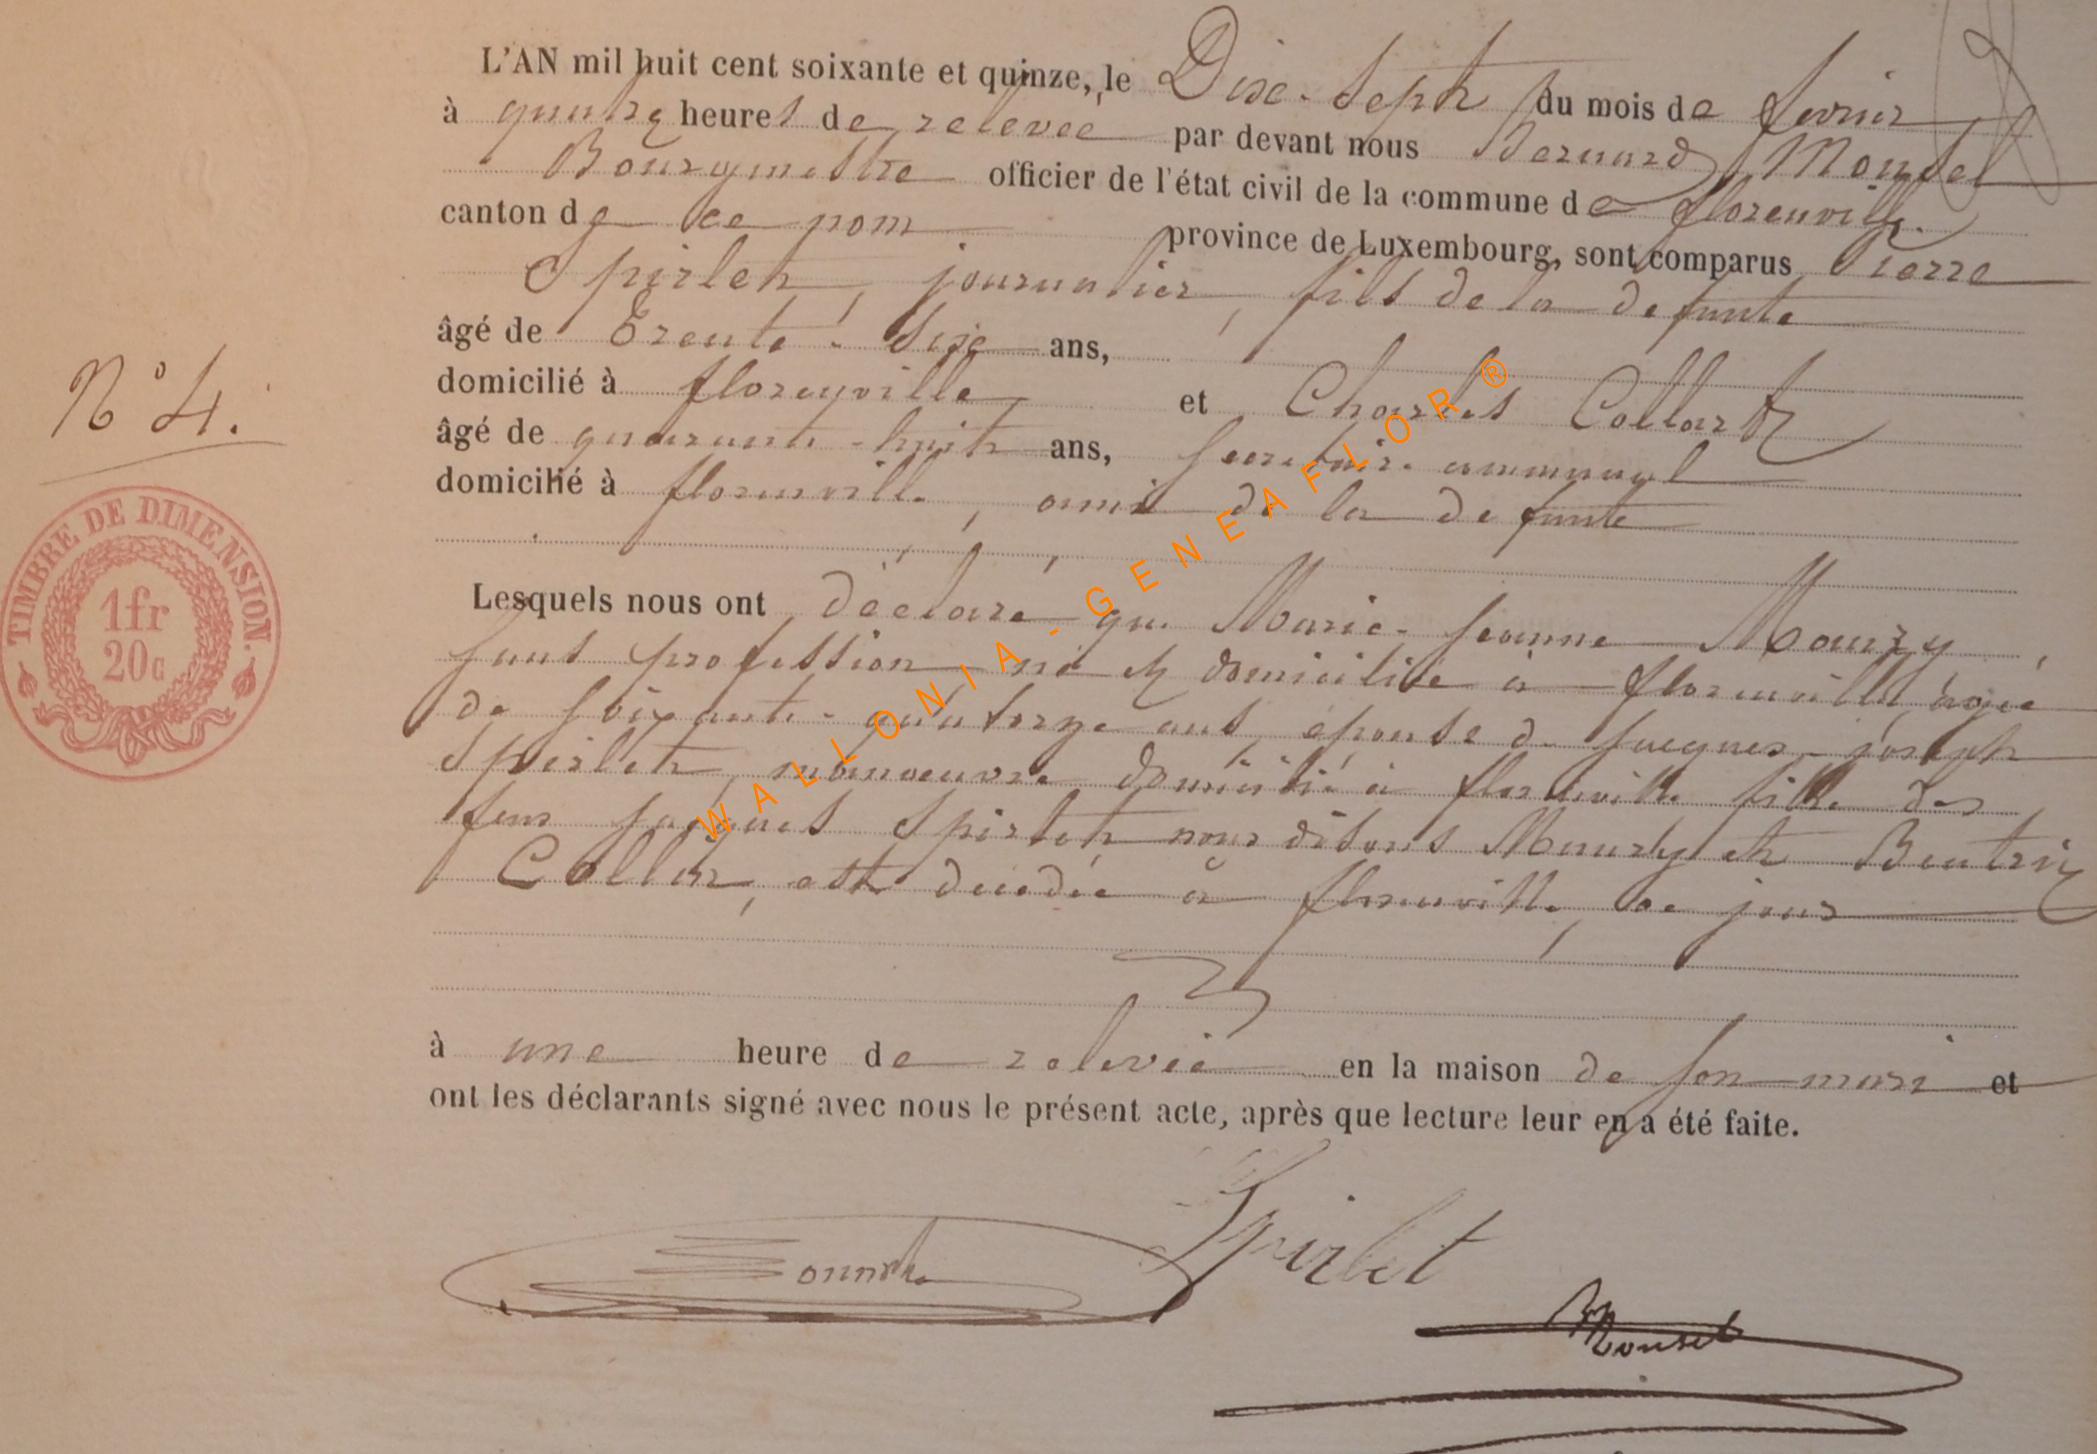 L'AN mil huit cent soixante et quinze, le Dix-Sept du mois de fevrier
à quatre heures de relevée par devant nous Bernard Mousel
Bourgmestre officier de l'état civil de la commune de florenville
canton de ce nom province de Luxembourg, sont comparus Pierre
Spirlet, journalier, fils de la defunte
âgé de Trente-Six ans,
domicilié à florenville et Charles Collart
âgé de quarante-huit ans, Secretaire communal
domicilié à florenville, ami de la defunte
N° 4.
TIMBRE DE DIMENSION.
1fr
20c
Lesquels nous ont déclaré que Marie-Jeanne Maury,
sans profession née et domiciliée à florenville, agée
de soixante-quatorze ans, épouse de Jacques-joseph
Spirlet, manoeuvre domicilié à florenville fille des
feus Jacques Spirlet nous disons Maury et Beatrix
Collin, est decedée à florenville, ce jour
à une heure de relevée en la maison de son mari et
ont les déclarants signé avec nous le présent acte, après que lecture leur en a été faite.
Spirlet
Mousel
WALLONIA-GENEAFLOR®